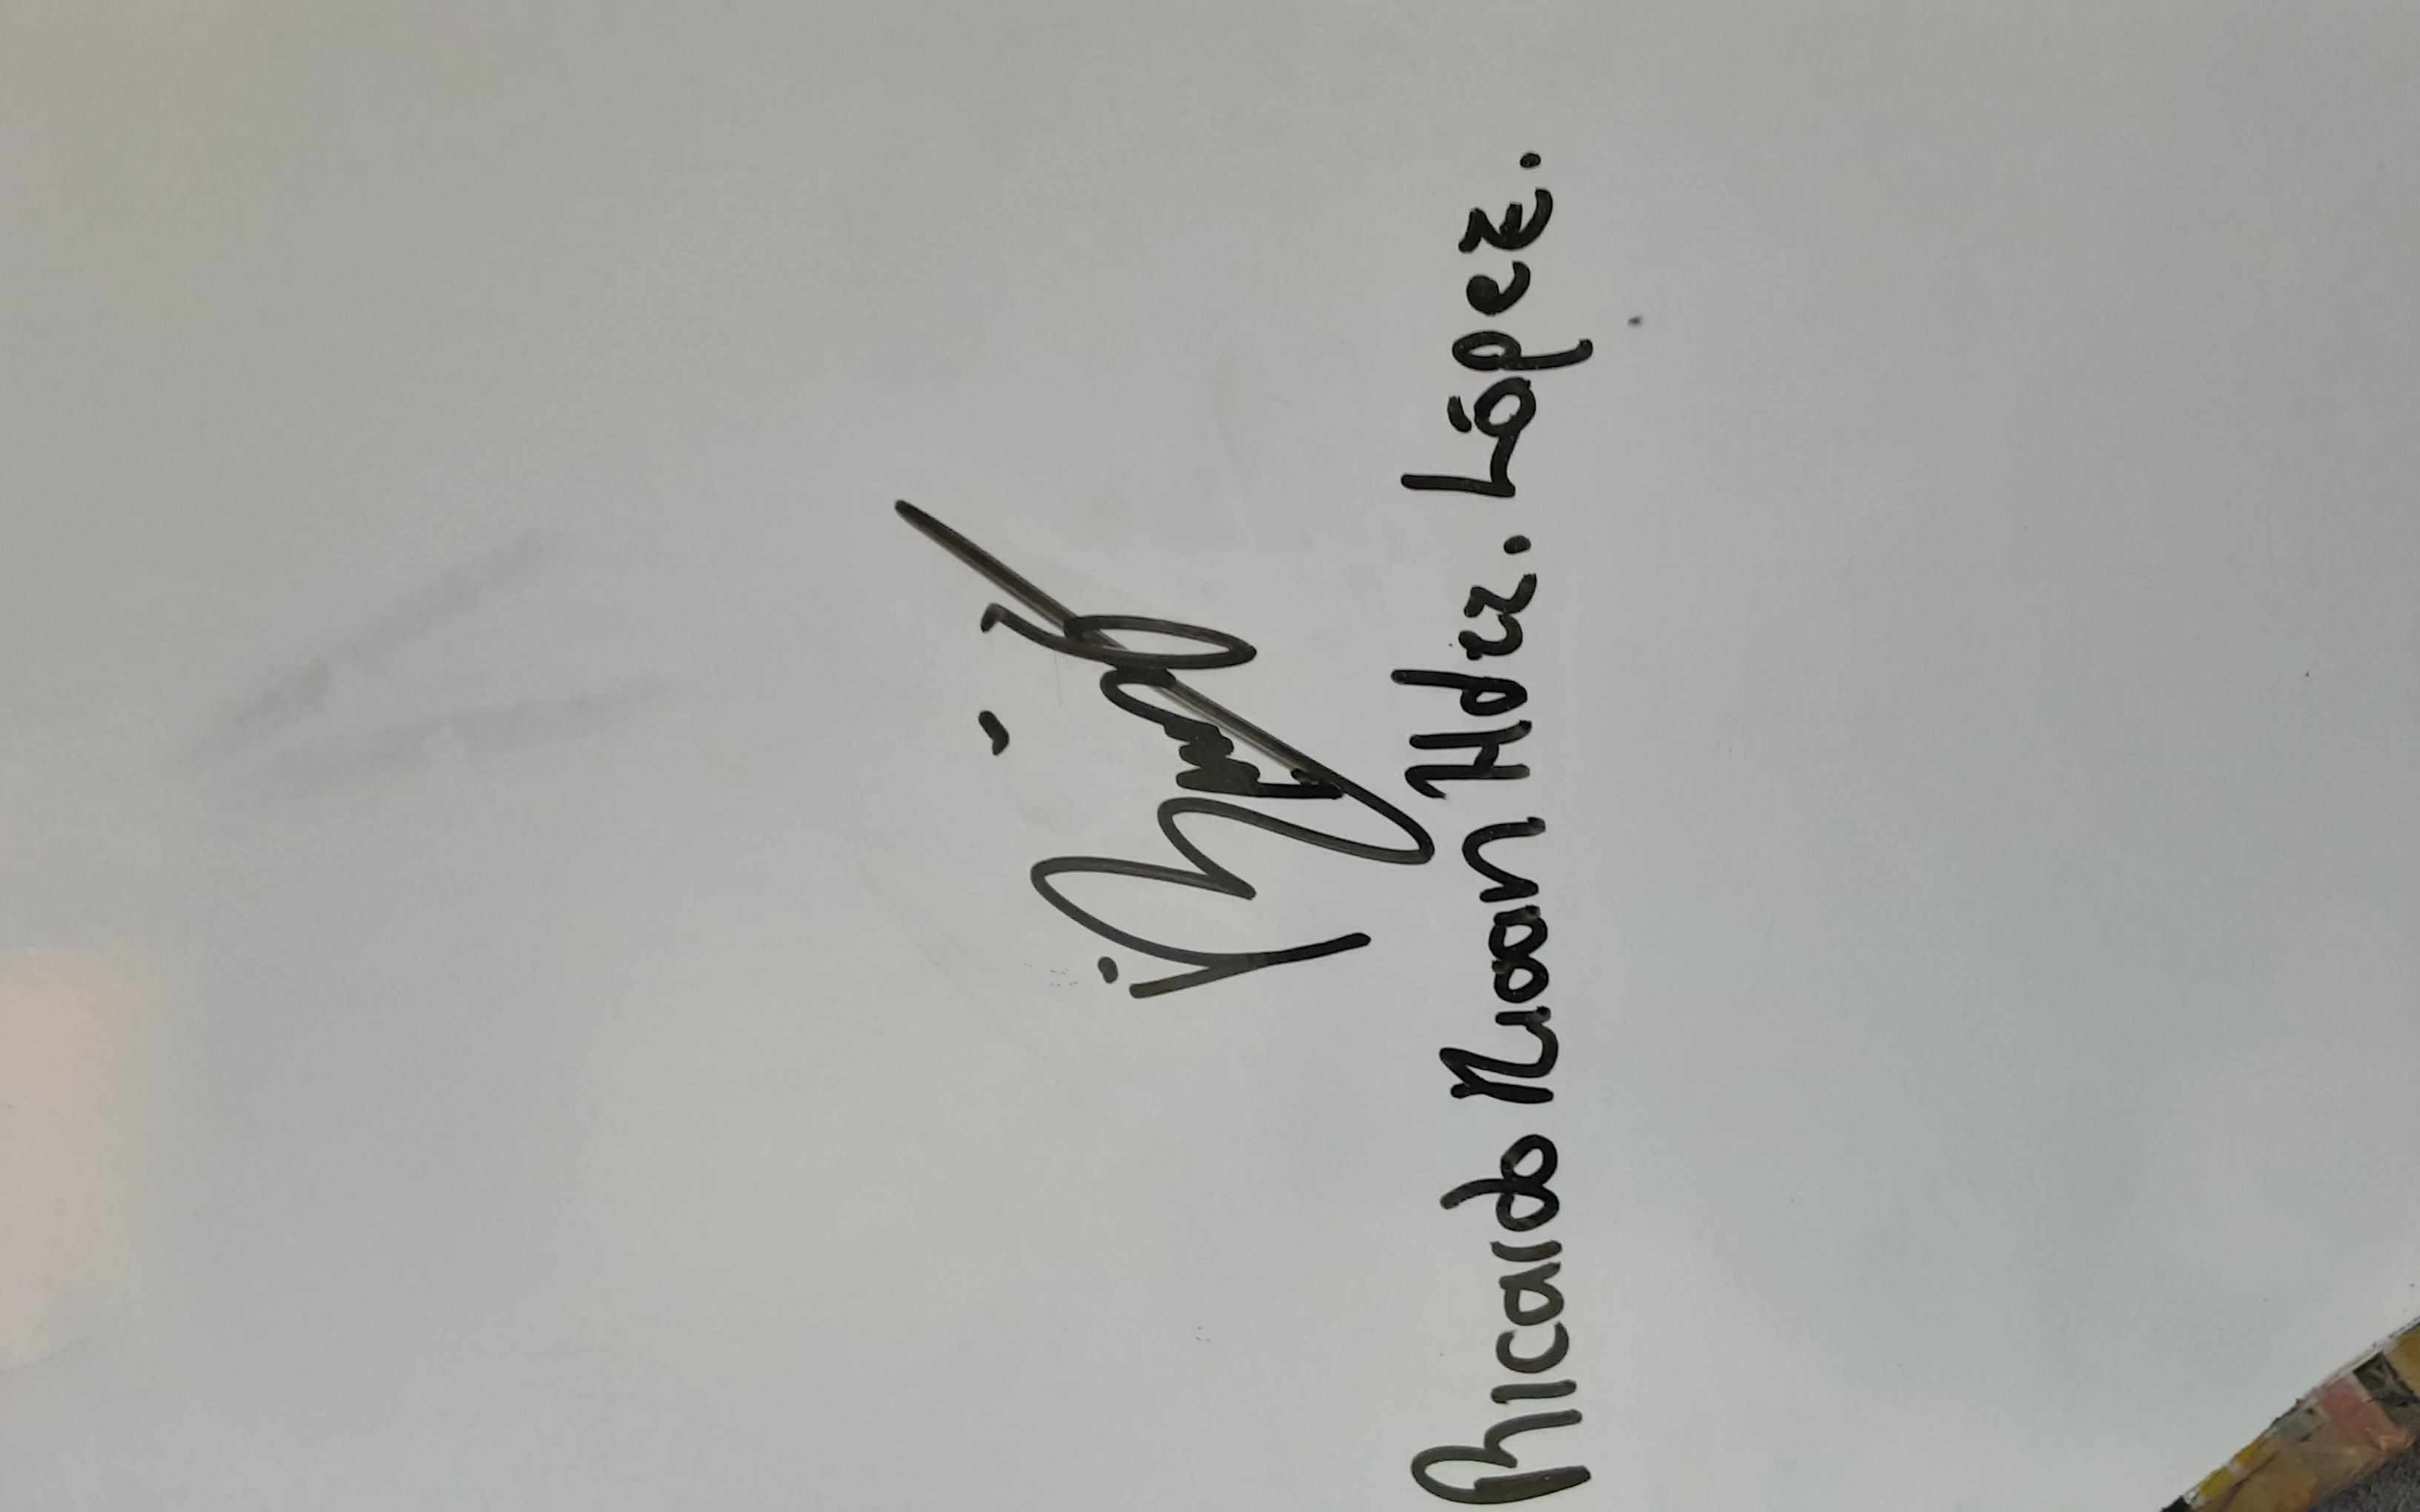 Ricardo Iuaan Hdz. López.